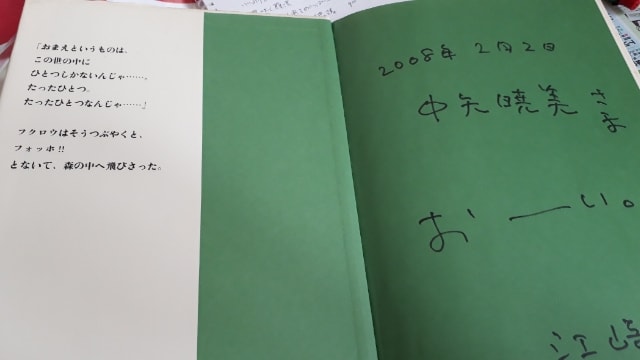 「おまえというものは、
この世の中に
ひとつしかないんじゃ……。
たったひとつ。
たったひとつなんじゃ……」
フクロウはそうつぶやくと、
フォッホ!!
とないて、森の中へ飛びさった。
2008年2月2日
中矢暁美さま
おーい。
江崎